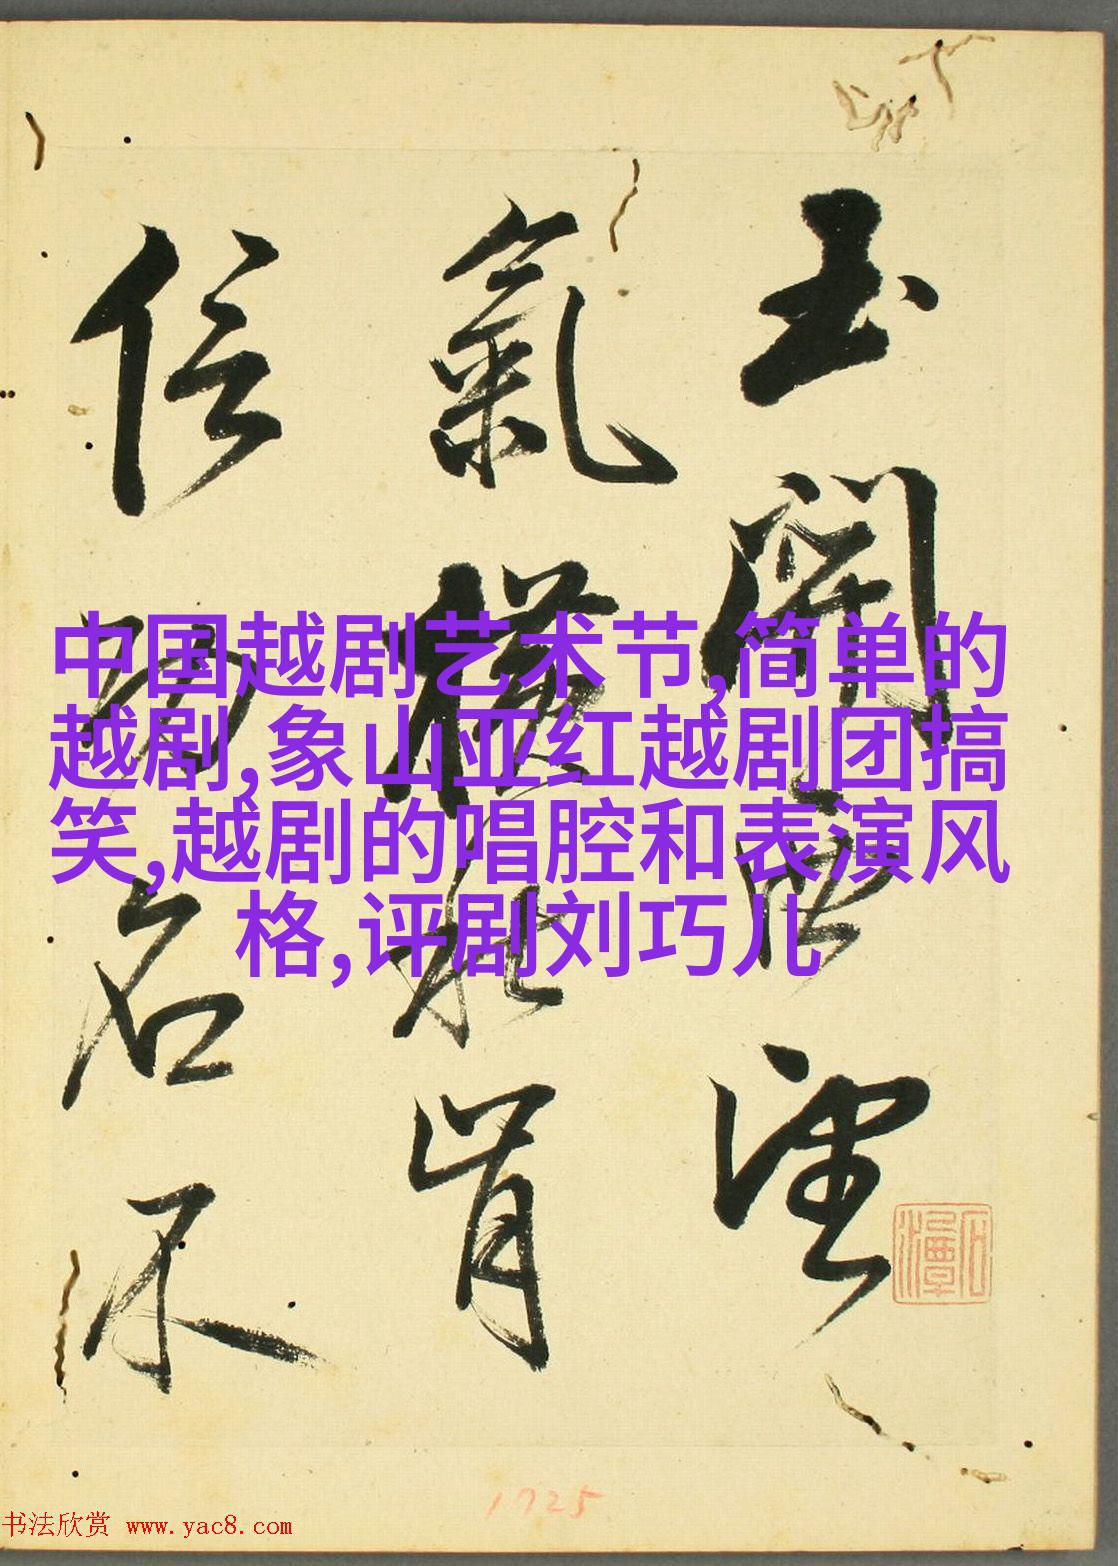 玉關西望
氣橫秋肯
信功名不
中国越剧艺术节,简单的
越剧,象山亚红越剧团搞
笑,越剧的唱腔和表演风
格,评剧刘巧儿
1725
书法欣赏 www.yac8.com